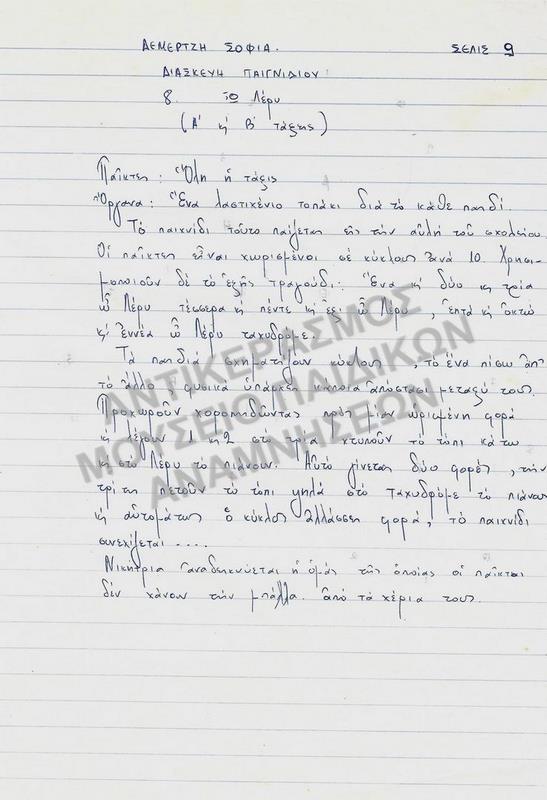 ΔΕΜΕΡΤΖΗ ΣΟΦΙΑ. ΣΕΛΙΣ 9
ΔΙΑΣΚΕΥΗ ΠΑΙΓΝΙΔΙΟΥ
8. Τὸ Λέρυ
(Α' κ' Β' τάξης)
Παῖκτες: Ὅλη ἡ τάξις
Ὄργανα: Ἕνα λαστιχένιο τοπάκι διὰ τὸ κάθε παιδί.
Τὸ παιχνίδι τοῦτο παίζεται εἰς τὴν αὐλὴ τοῦ σχολείου
Οἱ παῖκτες εἶναι χωρισμένοι σὲ κύκλους ἀνὰ 10. Χρησι-
μοποιοῦν δὲ τὸ ἑξῆς τραγούδι: Ἕνα κὴ δύο κὴ τρία
ὦ Λέρυ τέσσερα κὴ πέντε κὴ ἕξι ὦ Λέρυ, ἑπτὰ κὴ ὀκτὼ
κὴ ἐννέα ὦ Λέρυ ταχυδρόμε.
Τὰ παιδιὰ σχηματίζουν κύκλους, τὸ ἕνα πίσω ἀπ'
τὸ ἄλλο, φυσικὰ ὑπάρχει κάποια ἀπόστασι μεταξύ τους.
Προχωροῦν χοροπηδώντας πρὸς μίαν ὡρισμένη φορά
κὴ λέγουν 1 κὴ 2 στὸ τρία κτυποῦν τὸ τόπι κάτω
κὴ στὸ Λέρυ τὸ πιάνουν. Αὐτὸ γίνεται δύο φορές, τὴν
τρίτη πετοῦν τὸ τόπι ψηλὰ στὸ ταχυδρόμε τὸ πιάνουν
κὴ αὐτομάτως ὁ κύκλος ἀλλάσσει φορά, τὸ παιχνίδι
συνεχίζεται ....
Νικήτρια ἀναδεικνύεται ἡ ὁμὰς τῆς ὁποίας οἱ παῖκται
δὲν χάνουν τὴν μπάλλα ἀπὸ τὰ χέρια τους.
ΑΝΤΙΚΕΡΑΣΜΟΣ
ΜΟΥΣΕΙΟ ΠΑΙΔΙΚΩΝ
ΑΝΑΜΝΗΣΕΩΝ